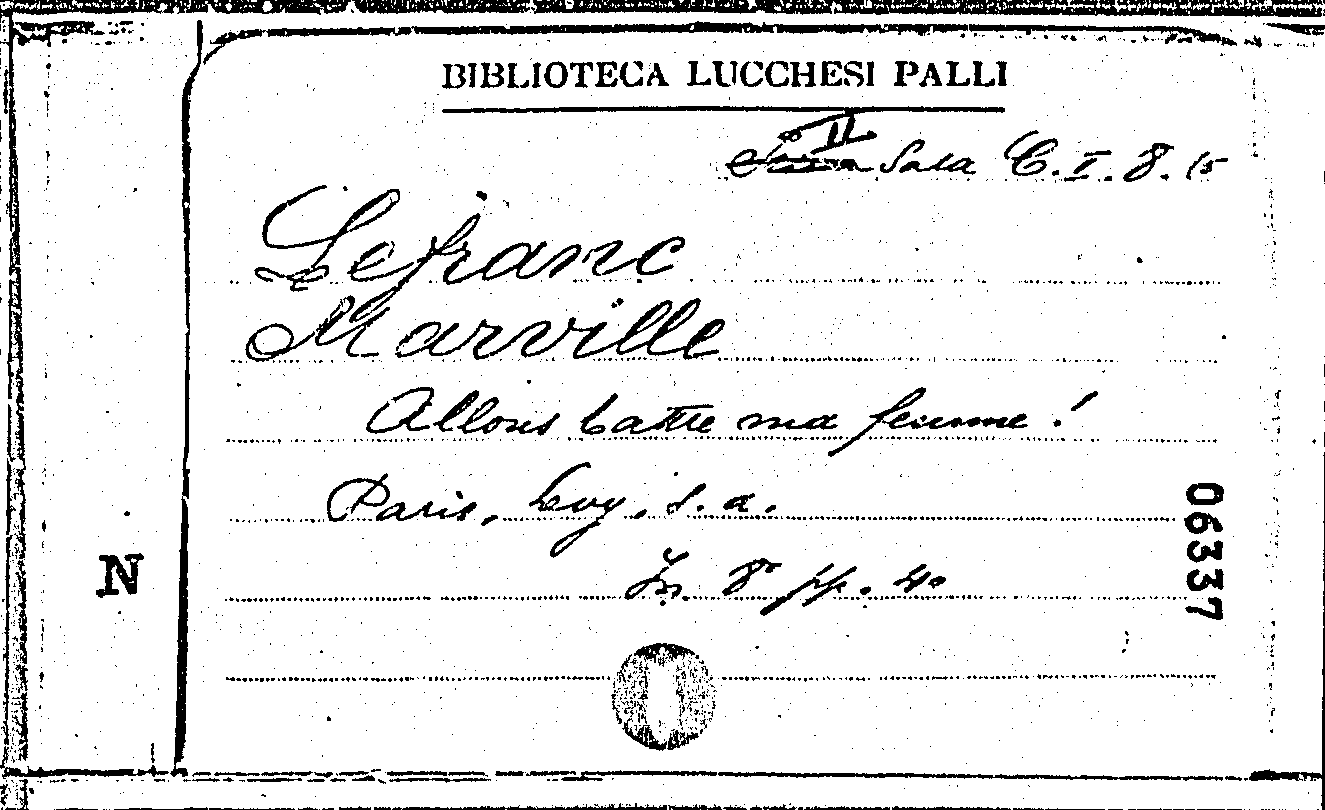 BIBLIOTECA LUCCHESI PALLI
II Sala C. I. 8. 15
Lefranc
Marville
Allons battre ma femme !
Paris, Levy, s. a.
In 8° pp. 40
06337
N